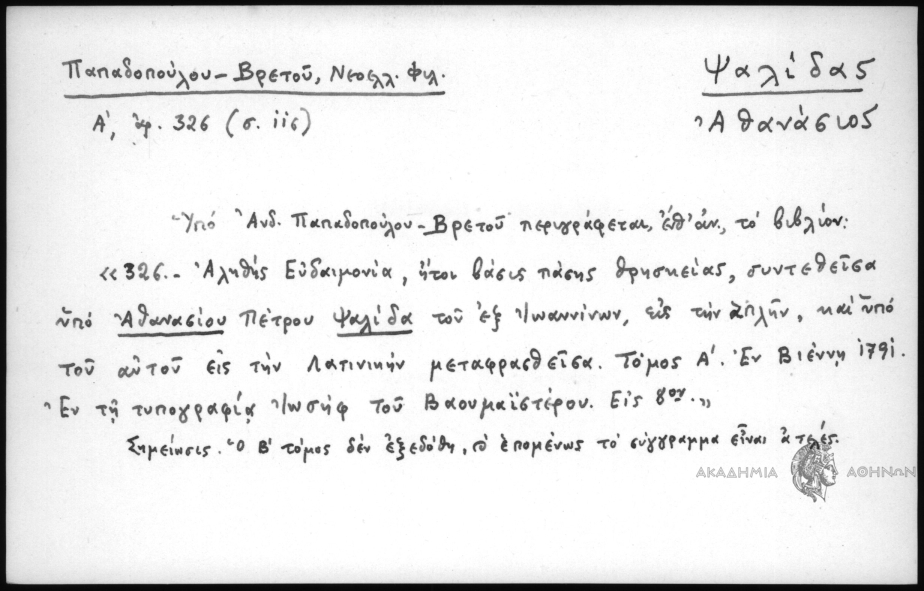 Παπαδοπούλου-Βρετοῦ, Νεοελλ. Φιλ.
Ψαλίδας
Α', ἀρ. 326 (σ. 116)
Ἀθανάσιος
Ὑπό Ἀνδ. Παπαδοπούλου-Βρετοῦ περιγράφεται, ἔνθ' ἀν., τό βιβλίον:
«326.- Ἀληθής Εὐδαιμονία, ἤτοι βάσις πάσης θρησκείας, συντεθεῖσα
ὑπό Ἀθανασίου Πέτρου Ψαλίδα τοῦ ἐξ Ἰωαννίνων, εἰς τήν ἁπλῆν, καί ὑπό
τοῦ αὐτοῦ εἰς τήν Λατινικήν μεταφρασθεῖσα. Τόμος Α'. Ἐν Βιέννῃ 1791.
Ἐν τῇ τυπογραφίᾳ Ἰωσήφ τοῦ Βαουμαϊστέρου. Εἰς 8ον.»
Σημείωσις. Ὁ Β' τόμος δέν ἐξεδόθη, ἑπομένως τό σύγγραμμα εἶναι ἀτελές.
ΑΚΑΔΗΜΙΑ ΑΘΗΝΩΝ